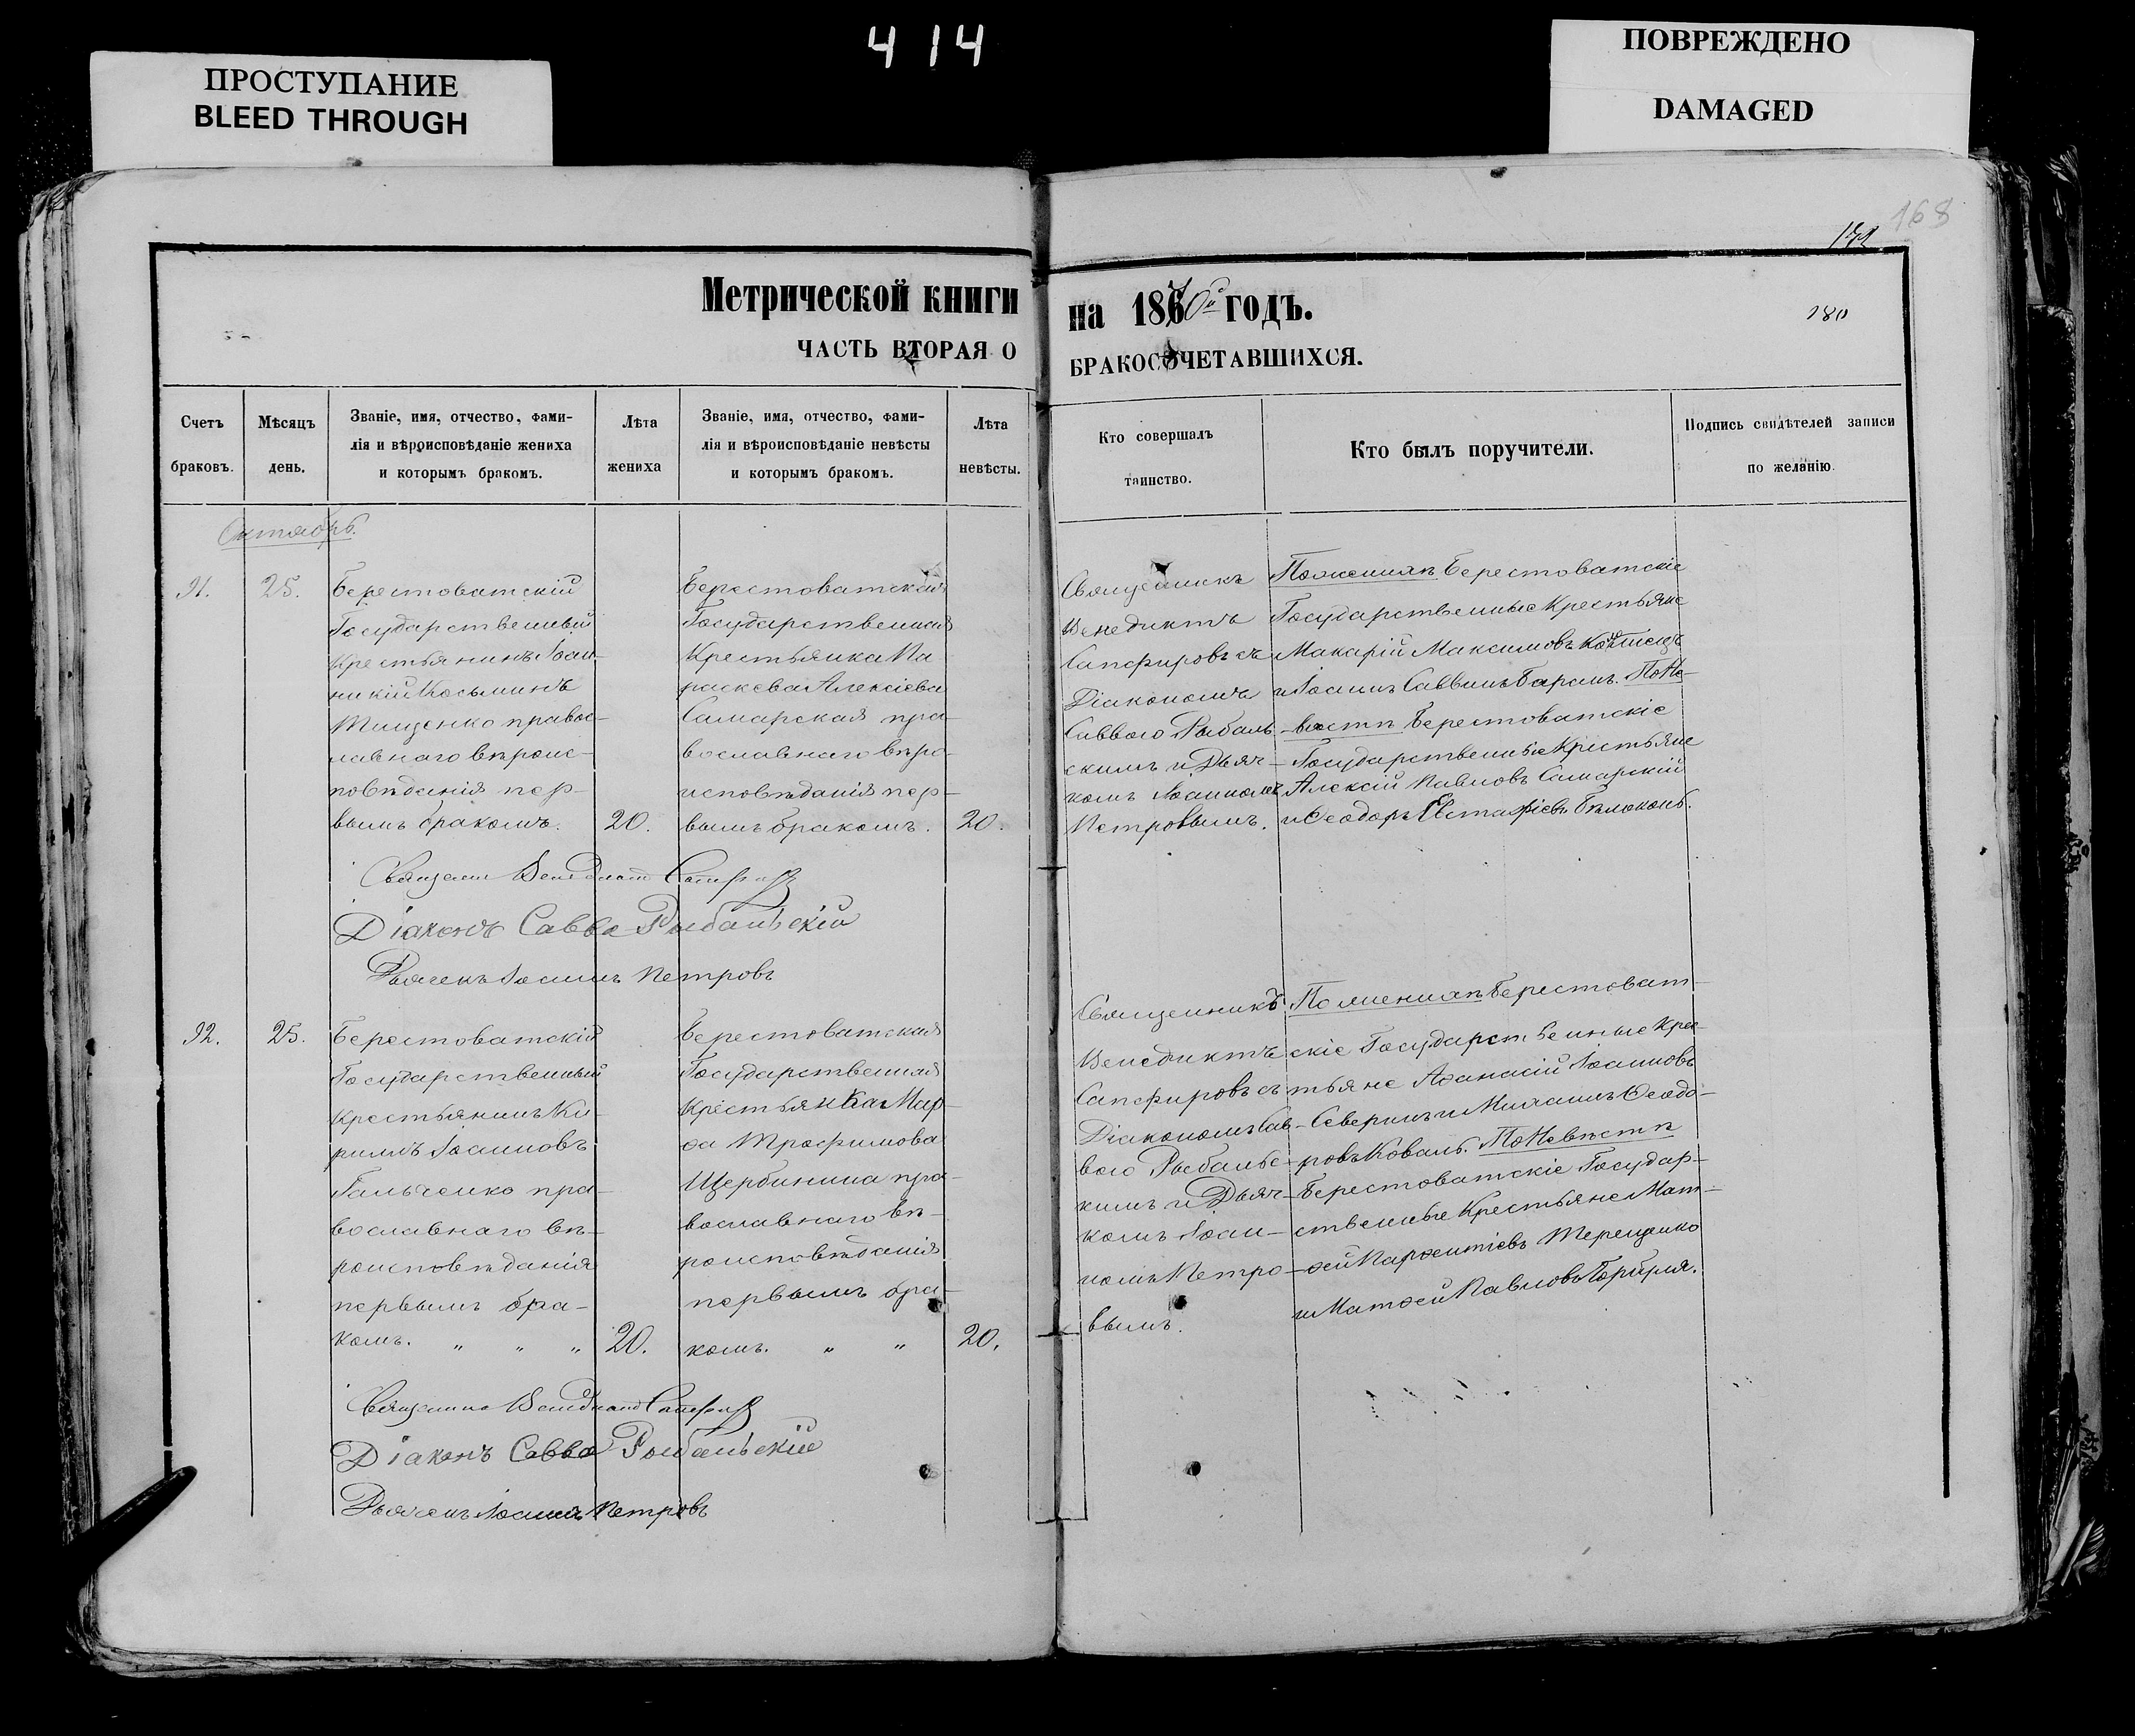 414
ПРОСТУПАНИЕ
BLEED THROUGH
ПОВРЕЖДЕНО
DAMAGED
168
180
Метрической книги на 1870й годъ.
ЧАСТЬ ВТОРАЯ О БРАКОСОЧЕТАВШИХСЯ.
Счетъ браковъ.
Мѣсяцъ день.
Званіе, имя, отчество, фами-
лія и вѣроисповѣданіе жениха
и которымъ бракомъ.
Лѣта жениха
Званіе, имя, отчество, фами-
лія и вѣроисповѣданіе невѣсты
и которымъ бракомъ.
Лѣта невѣсты.
Кто совершалъ
таинство.
Кто былъ поручители.
Подпись свидѣтелей записи
по желанію.
Октябрь.
25.
Берестоватскій
Государственный
Крестьянинъ Іоан-
никій Косьминъ
Тищенко правос-
лавнаго вѣроис-
повѣданія пер-
вымъ бракомъ.
20.
Берестоватская
Государственная
Крестьянка Па
раскева Алексіева
Самарская пра-
вославнаго вѣро-
исповѣданія пер-
вымъ бракомъ.
20.
Священникъ
Венедиктъ
Сапфировъ съ
Діакономъ
Саввою Рыбаль
скимъ и Дьяч-
комъ Іоанномъ
Петровымъ.
По женихѣ Берестоватскіе
Государственные Крестьяне
Макарій Максимовъ
и Іоаннъ Саввинъ Баранъ. По Не-
вѣстѣ Берестоватскіе
Государственные Крестьяне
Алексій Павловъ Самарскій
и Ѳеодоръ Евстафіевъ Бѣлоконь.
Священникъ Венедиктъ Сапфировъ
Діаконъ Савва Рыбальскій
Дьячекъ Іоаннъ Петровъ
25.
Берестоватскій
Государственный
Крестьянинъ Ки-
риллъ Іоанновъ
Гальченко пра-
вославнаго вѣ-
роисповѣданія
первымъ бра-
комъ. " " "
20.
Берестоватская
Государственная
Крестьянка Мар-
ѳа Трофимова
Щербинина пра-
вославнаго вѣ-
роисповѣданія
первымъ бра-
комъ. " "
20.
Священникъ
Венедиктъ
Сапфировъ съ
Діакономъ Сав-
вою Рыбальс-
кимъ и Дьяч-
комъ Іоан-
номъ Петро-
вымъ.
По женихѣ Берестоват-
скіе Государственные Крес-
тьяне Аѳанасій Іоанновъ
Северинъ и Михаилъ Ѳеодо-
ровъ Коваль. По Невѣстѣ
Берестоватскіе Государ-
ственные Крестьяне Мат-
ѳей Парѳентіевъ Терещенко
и Матѳей Павловъ
Священникъ Венедиктъ Сапфировъ
Діаконъ Савва Рыбальскій
Дьячекъ Іоаннъ Петровъ